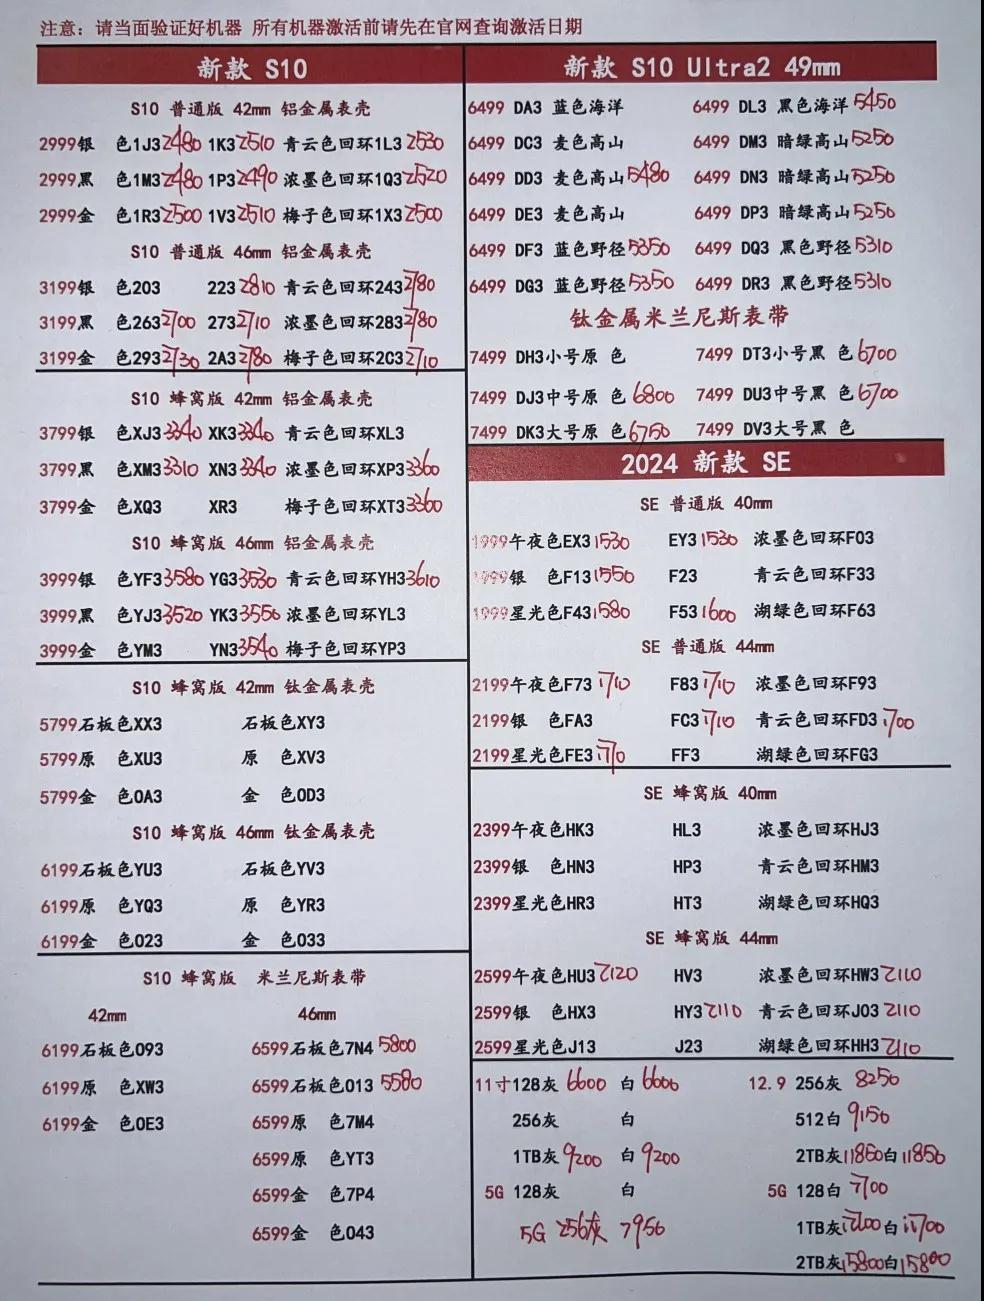 注意：请当面验证好机器 所有机器激活前请先在官网查询激活日期
新款 S10
S10 普通版 42mm 铝金属表壳
2999银 色1J3 2480 1K3 2510 青云色回环1L3 2530
2999黑 色1M3 2480 1P3 2490 浓墨色回环1Q3 2520
2999金 色1R3 2500 1V3 2510 梅子色回环1X3 2500
S10 普通版 46mm 铝金属表壳
3199银 色203 223 2810 青云色回环243 2780
3199黑 色263 2700 273 2710 浓墨色回环283 2780
3199金 色293 2730 2A3 2780 梅子色回环2C3 2710
S10 蜂窝版 42mm 铝金属表壳
3799银 色XJ3 3340 XK3 3340 青云色回环XL3
3799黑 色XM3 3310 XN3 3340 浓墨色回环XP3 3360
3799金 色XQ3 XR3 梅子色回环XT3 3360
S10 蜂窝版 46mm 铝金属表壳
3999银 色YF3 3580 YG3 3530 青云色回环YH3 3610
3999黑 色YJ3 3520 YK3 3550 浓墨色回环YL3
3999金 色YM3 YN3 3540 梅子色回环YP3
S10 蜂窝版 42mm 钛金属表壳
5799石板色XX3 石板色XY3
5799原 色XU3 原 色XV3
5799金 色0A3 金 色0D3
S10 蜂窝版 46mm 钛金属表壳
6199石板色YU3 石板色YV3
6199原 色YQ3 原 色YR3
6199金 色023 金 色033
S10 蜂窝版 米兰尼斯表带
42mm 46mm
6199石板色093 6599石板色7N4 5800
6199原 色XW3 6599石板色013 5580
6199金 色0E3 6599原 色7M4
6599原 色YT3
6599金 色7P4
6599金 色043
新款 S10 Ultra2 49mm
6499 DA3 蓝色海洋 6499 DL3 黑色海洋 5450
6499 DC3 麦色高山 6499 DM3 暗绿高山 5250
6499 DD3 麦色高山 5480 6499 DN3 暗绿高山 5250
6499 DE3 麦色高山 6499 DP3 暗绿高山 5250
6499 DF3 蓝色野径 5350 6499 DQ3 黑色野径 5310
6499 DG3 蓝色野径 5350 6499 DR3 黑色野径 5310
钛金属米兰尼斯表带
7499 DH3小号原 色 7499 DT3小号黑 色 6700
7499 DJ3中号原 色 6800 7499 DU3中号黑 色 6700
7499 DK3大号原 色 6750 7499 DV3大号黑 色
2024 新款 SE
SE 普通版 40mm
1999午夜色EX3 1530 EY3 1530 浓墨色回环F03
1999银 色F13 1550 F23 青云色回环F33
1999星光色F43 1580 F53 1600 湖绿色回环F63
SE 普通版 44mm
2199午夜色F73 1710 F83 1710 浓墨色回环F93
2199银 色FA3 FC3 1710 青云色回环FD3 1700
2199星光色FE3 1710 FF3 湖绿色回环FG3
SE 蜂窝版 40mm
2399午夜色HK3 HL3 浓墨色回环HJ3
2399银 色HN3 HP3 青云色回环HM3
2399星光色HR3 HT3 湖绿色回环HQ3
SE 蜂窝版 44mm
2599午夜色HU3 2120 HV3 浓墨色回环HW3 2110
2599银 色HX3 HY3 2110 青云色回环J03 2110
2599星光色J13 J23 湖绿色回环HH3 2110
11寸128灰 6600 白 6600 12.9 256灰 8250
256灰 白 512白 9150
1TB灰 9200 白 9200 2TB灰 11860 白 11850
5G 128灰 白 5G 128白 7700
5G 256灰 7950 1TB灰 白 11700
2TB灰 15800 白 15800